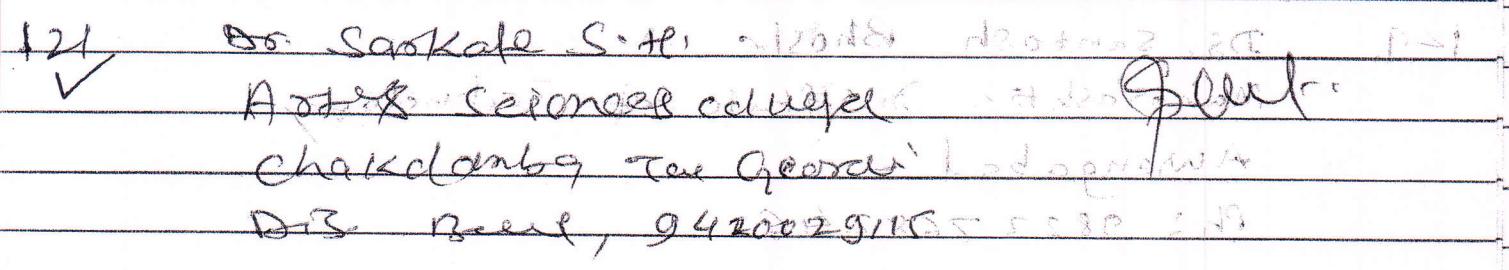 121 Dr. Sarkale S.H.
Arts & Sciences college
Chakdamba Tal Georai
Dis Beed, 9420029115